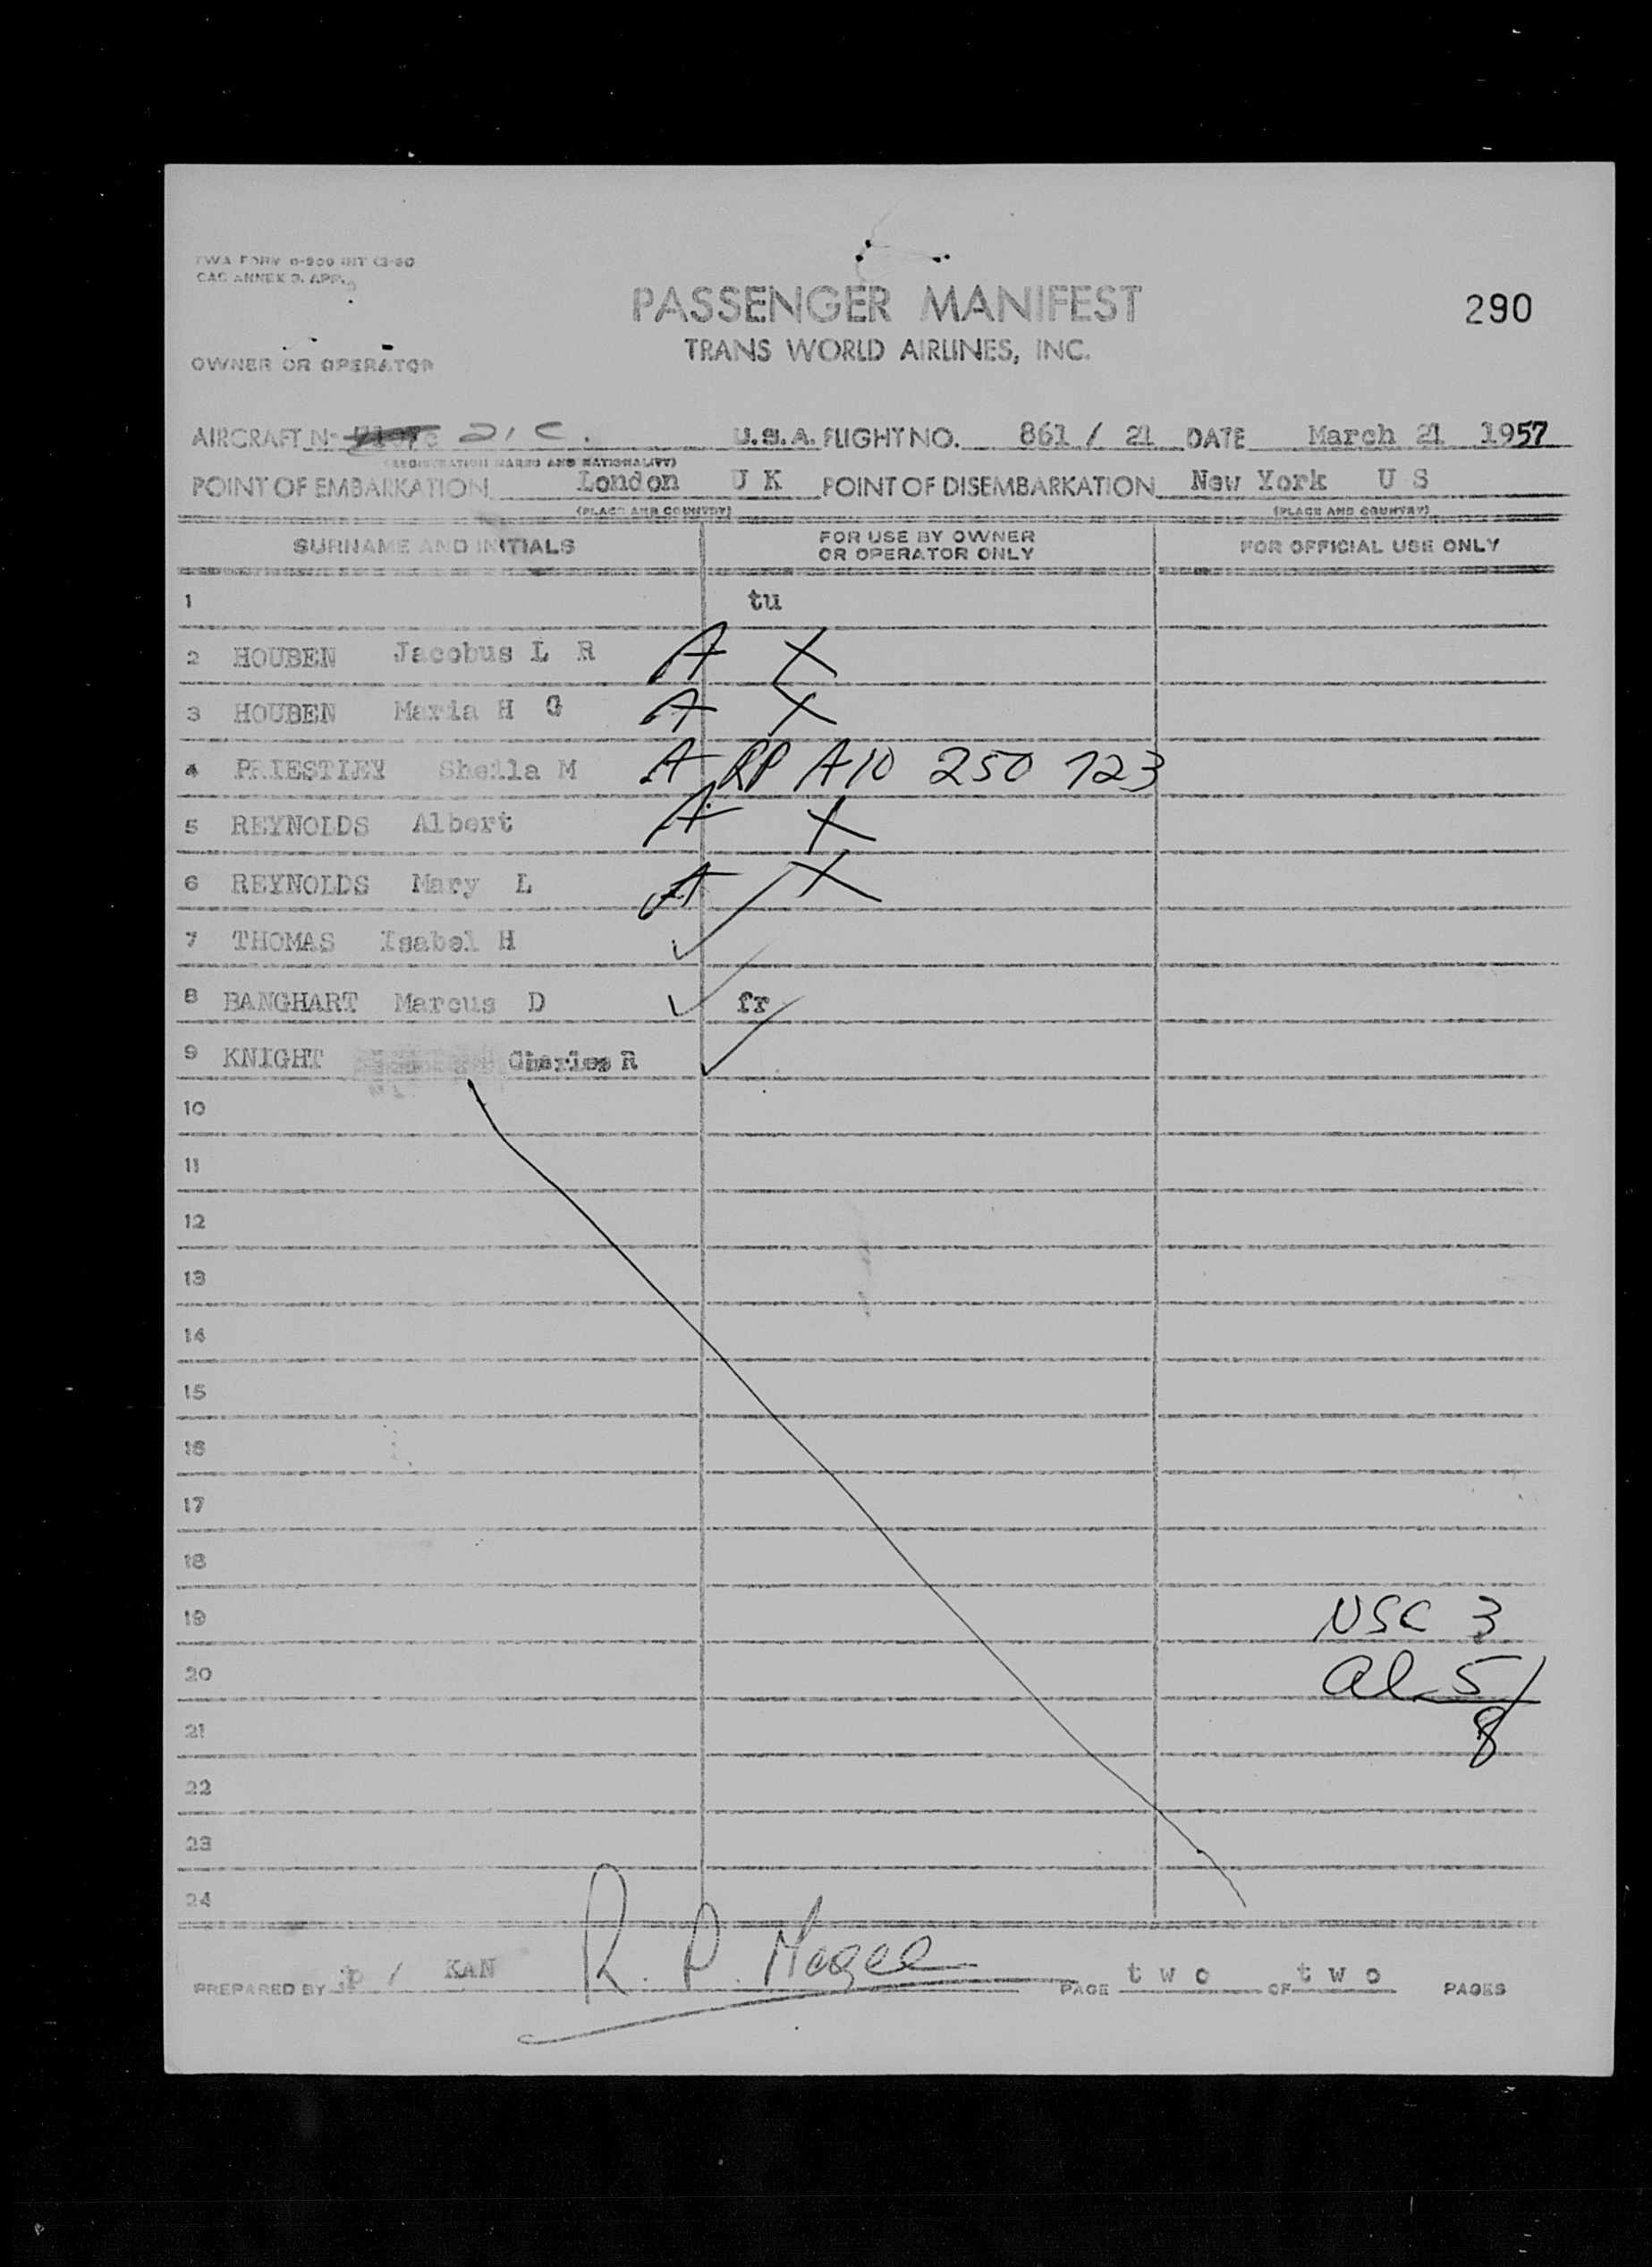 TWA FORM
CAC ANNEX 9. APP.
PASSENGER MANIFEST
290
TRANS WORLD AIRLINES, INC.
OWNER OR OPERATOR
AIRCRAFT No 21C. U.S.A. FLIGHT NO. 861 / 21 DATE March 21 1957
(REGISTRATION MARKS AND NATIONALITY)
POINT OF EMBARKATION London U K POINT OF DISEMBARKATION New York U S
(PLACE AND COUNTRY) (PLACE AND COUNTRY)
SURNAME AND INITIALS FOR USE BY OWNER OR OPERATOR ONLY FOR OFFICIAL USE ONLY
1 tu
2 HOUBEN Jacobus L R A X
3 HOUBEN Maria H G A X
4 PRIESTLEY Sheila M A RP A10 250 723
5 REYNOLDS Albert A X
6 REYNOLDS Mary L A X
7 THOMAS Isabel H ✓
8 BANGHART Marcus D ✓ fr
9 KNIGHT Charles R ✓
10
11
12
13
14
15
16
17
18
19 USC 3
20 al 5/
21 8
22
23
24
PREPARED BY jp / KAN R. P. Magee PAGE two OF two PAGES